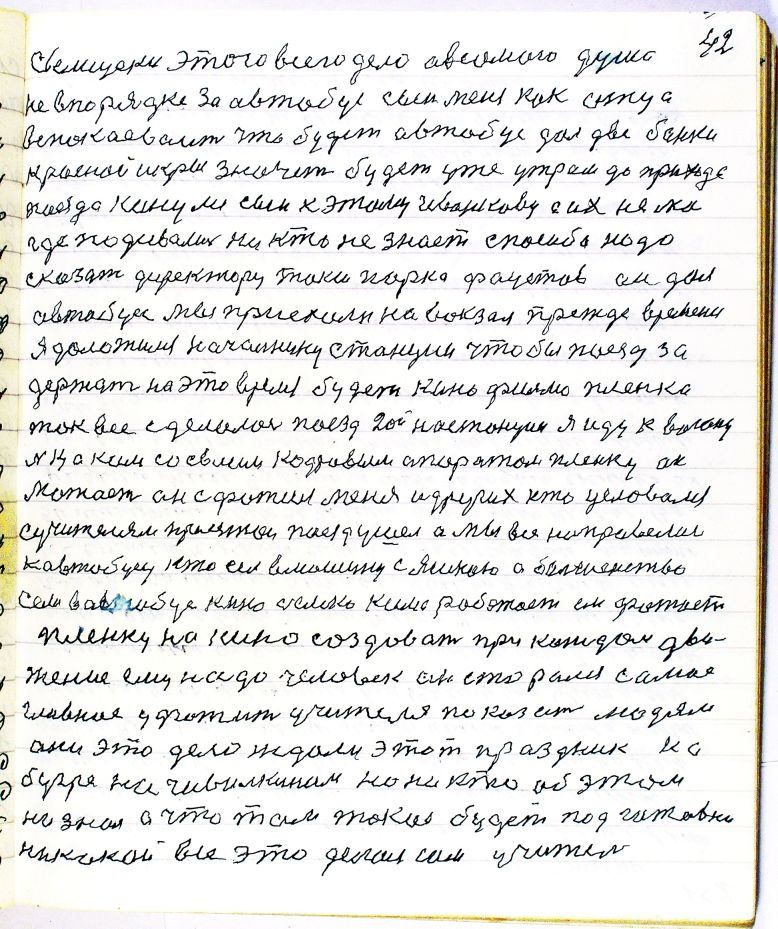 42
этого всего дело а в самого душа
не в порядке за автобус сын меня как
что будет автобус дал две банки
красной икры значит будет уже утрам до прихода
поезда кинулись к этому а их нема
где подевались ни кто не знает спосиба надо
сказат директору парка он дал
автобус мы приехали на вокзал прежде времени
я доложился началнику станции чтобы поезд за
держат на это время будет кино пленка
так все сделалос поезд 2ой на станции я иду к вагону
со своим апаратом пленку он
он сфотил меня и других кто целовался
с учителям поезд ушел а мы все направелис
к автобусу кто сел в машину с а
сели в автобус кино работает он
пленку на кино создоват при каждом дви-
жение ему надо человек он старался самое
главное уфотит учителя показат людям
они это дело ждали этот праздник на
бугре но ни кто об этом
не знал а что там такая будет под готовка
никакой все это делал сам учител